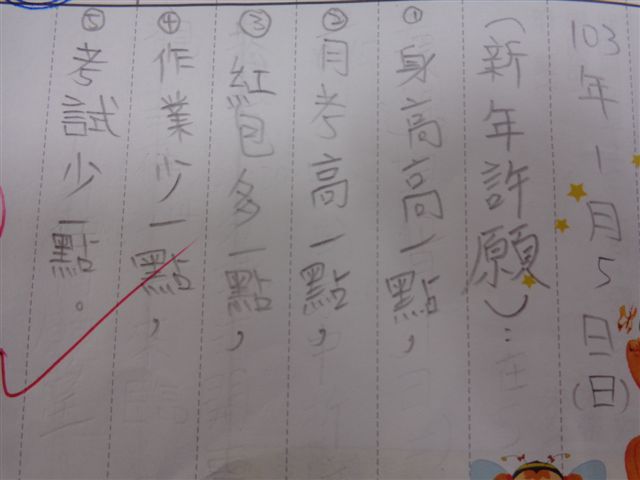 103年1月5日(日)
(新年許願)：
①身高高一點，
②月考高一點，
③紅包多一點，
④作業少一點，
⑤考試少一點。